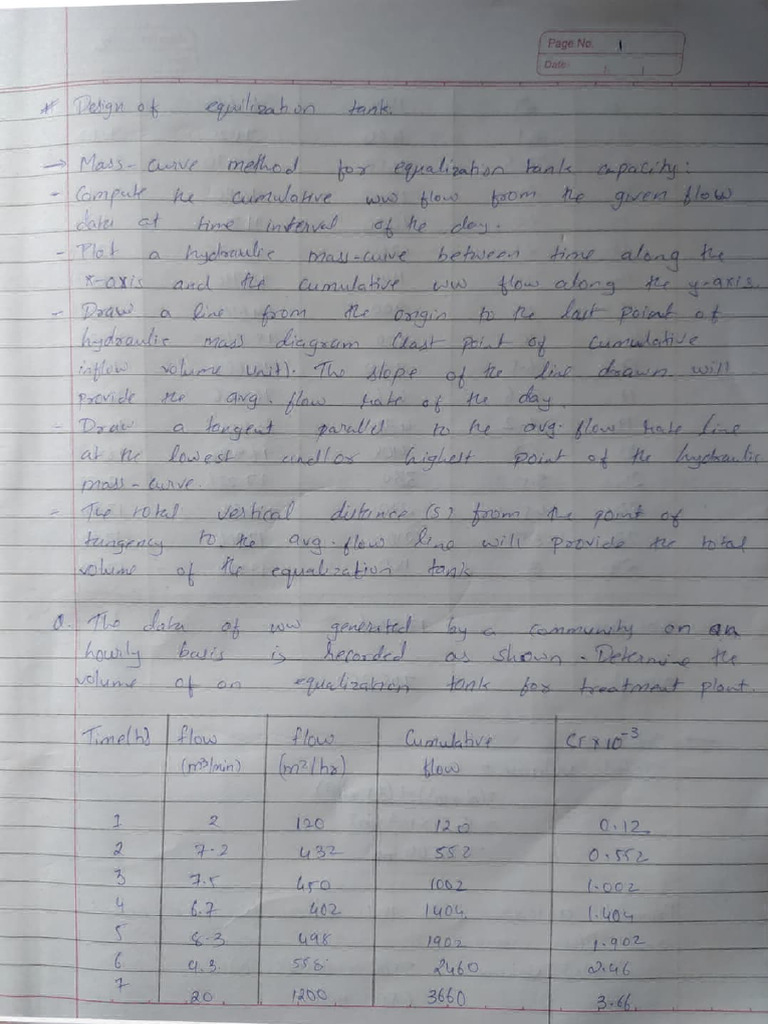 Page No. 1
Date:
* Design of equilization tank.
→ Mass-curve method for equalization tank capacity:
- Compute the cumulative ww flow from the given flow
data at time interval of the day.
- Plot a hydraulic mass-curve between time along the
x-axis and the cumulative ww flow along the y-axis.
- Draw a line from the origin to the last point of
hydraulic mass diagram (last point of cumulative
inflow volume unit). The slope of the line drawn will
provide the avg. flow rate of the day.
- Draw a tangent parallel to the avg. flow rate line
at the lowest and/or highest point of the hydraulic
mass-curve.
- The total vertical distance (s) from the point of
tangency to the avg. flow line will provide the total
volume of the equalization tank
Q. The data of ww generated by a community on an
hourly basis is recorded as shown. Determine the
volume of an equalization tank for treatment plant.
Time(h) flow flow Cumulative CF×10⁻³
(m³/min) (m³/hr) flow
1 2 120 120 0.12
2 7.2 432 552 0.552
3 7.5 450 1002 1.002
4 6.7 402 1404 1.404
5 8.3 498 1902 1.902
6 9.3 558 2460 2.46
7 20 1200 3660 3.66